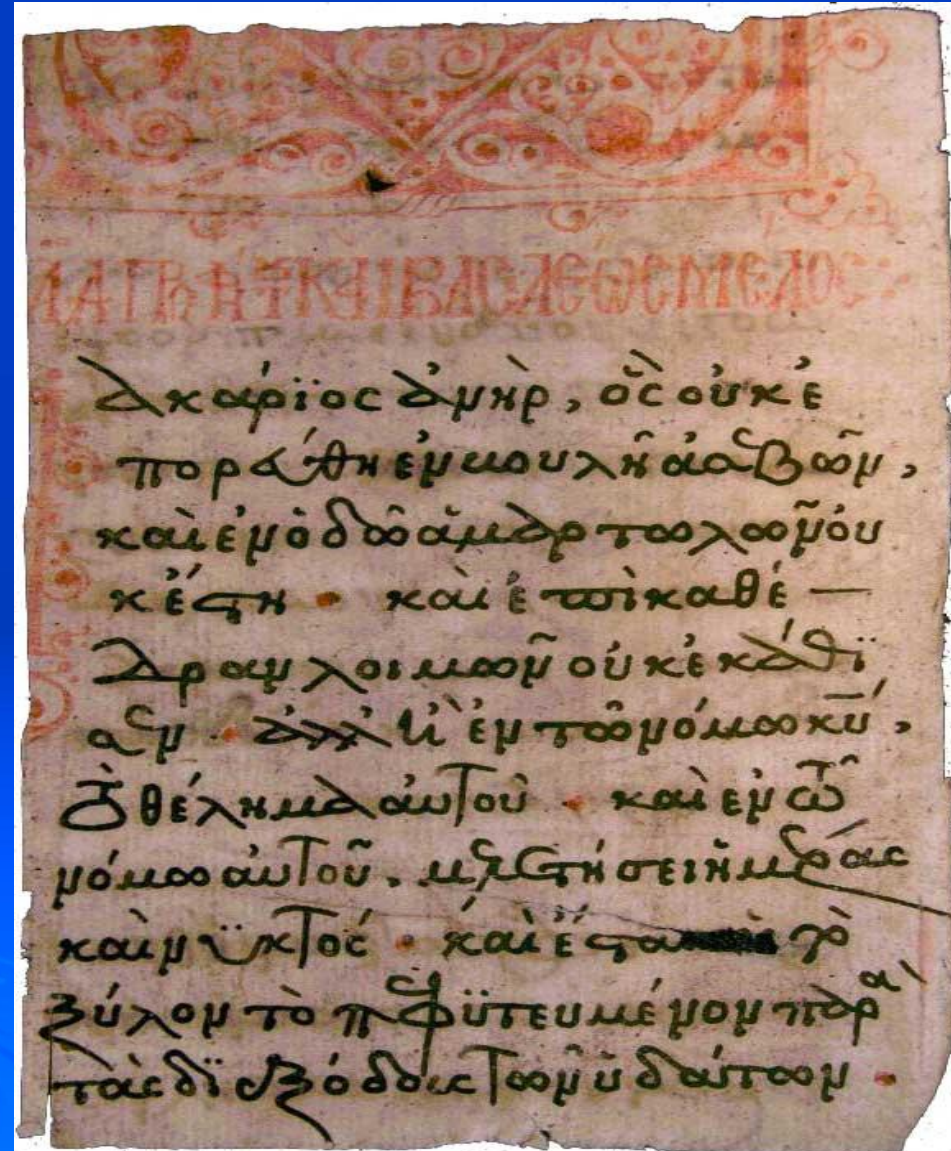 ΔΑΠΡΗΤΚΑΙΒΑϹΛΕΩϹΜΕΛΟϹ
ακάρϊος ἀνὴρ, ὃς οὐκ ἐ
πορεύθη ἐν βουλῆ ἀσεβῶν,
καὶ ἐν ὁδῶ ἁμαρτωλῶν οὐ
κ ἔστη · καὶ ἐπὶ καθέ —
δραν λοιμῶν οὐκ ἐκάθϊ
σεν · ἀλλ' ἢ ἐν τῶ νόμω κυ,
τὸ θέλημα αὐτοῦ · καὶ ἐν τῶ
νόμω αὐτοῦ, μελετήσει ἡμέρας
καὶ νϋκτός · καὶ ἔσται τὸ
ξύλον τὸ πεφϋτευμένον παρὰ
τὰς δϊεξόδους τῶν ὑδάτων ·